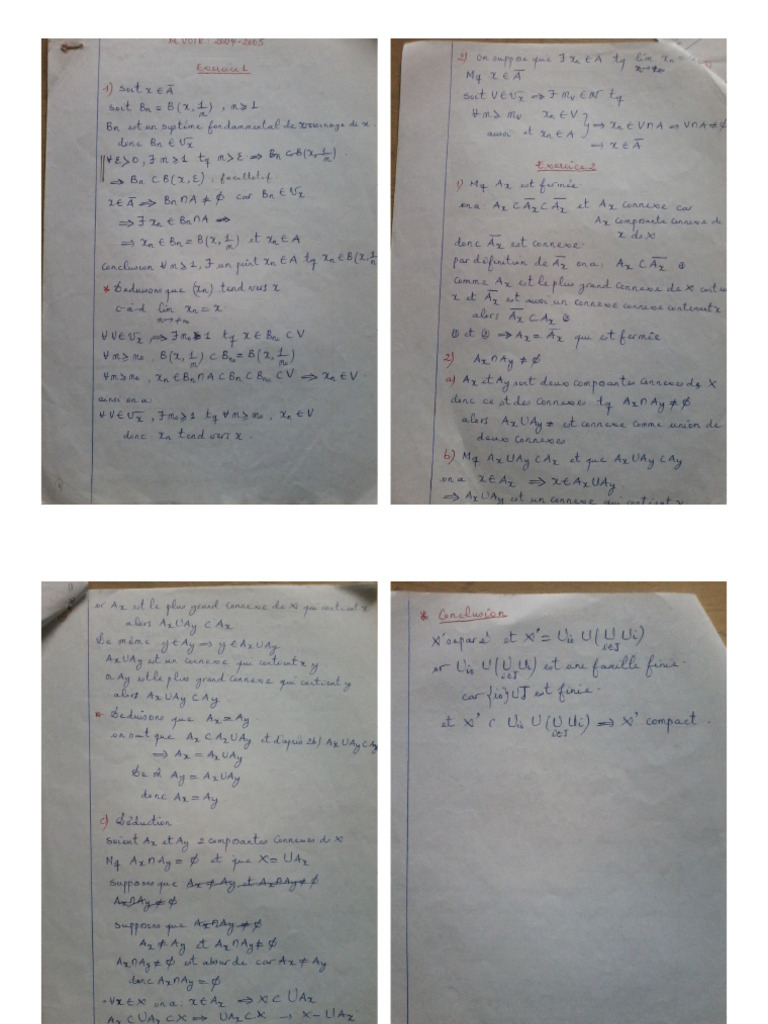 2004-2005
Exercice 1
1) Soit x ∈ A̅
Soit Bn = B(x, 1/n), n ≥ 1
Bn est un système fondamental de voisinage de x.
donc Bn ∈ Vx
∀ε>0, ∃ n ≥ 1 tq n > ε ⇒ Bn ⊂ B(x, 1/n)
⇒ Bn ⊂ B(x, ε)
x ∈ A̅ ⇒ Bn ∩ A ≠ ∅ car Bn ∈ Vx
⇒ ∃ xn ∈ Bn ∩ A ⇒
⇒ xn ∈ Bn = B(x, 1/n) et xn ∈ A
Conclusion ∀ n ≥ 1, ∃ un point xn ∈ A tq xn ∈ B(x, 1/n
* Déduisons que (xn) tend vers x
c-à-d lim xn = x
n→+∞
∀ V ∈ Vx, ⇒ ∃ n0 ≥ 1 tq x ∈ Bn0 ⊂ V
∀ n ≥ n0, B(x, 1/n) ⊂ Bn0 = B(x, 1/n0)
∀ n ≥ n0, xn ∈ Bn ∩ A ⊂ Bn ⊂ Bn0 ⊂ V ⇒ xn ∈ V.
ainsi on a
∀ V ∈ Vx, ∃ n0 ≥ 1 tq ∀ n ≥ n0, xn ∈ V
donc xn tend vers x.
2) on suppose que ∃ xn ∈ A tq lim xn =
Mq x ∈ A̅
soit V ∈ Vx ⇒ ∃ nv ∈ N tq
∀ n ≥ nv xn ∈ V
aussi et xn ∈ A } ⇒ xn ∈ V∩A ⇒ V∩A ≠ ∅
⇒ x ∈ A̅
Exercice 2
1) Mq Ax est fermée
on a: Ax ⊂ A̅x ⊂ A̅x et Ax connexe car
Ax composante connexe de
x de X
donc A̅x est connexe.
par définition de A̅x on a: Ax ⊂ A̅x ①
comme Ax est le plus grand connexe de X
x et A̅x est aussi un connexe connexe contenant x
alors A̅x ⊂ Ax ②
① et ② ⇒ Ax = A̅x qui est fermée
2) Ax∩Ay ≠ ∅
a) Ax et Ay sont deux composantes connexes de X
donc ce st des connexes tq Ax∩Ay ≠ ∅
alors Ax∪Ay est connexe comme union de
deux connexes
b) Mq Ax∪Ay ⊂ Ax et que Ax∪Ay ⊂ Ay
on a x ∈ Ax ⇒ x ∈ Ax∪Ay
⇒ Ax∪Ay est un connexe qui contient x
or Ax est le plus grand connexe de X qui contient x
alors Ax∪Ay ⊂ Ax
De même y ∈ Ay ⇒ y ∈ Ax∪Ay
Ax∪Ay est un connexe qui contient y
or Ay est le plus grand connexe qui contient y
alors Ax∪Ay ⊂ Ay
* Déduisons que Ax = Ay
on sait que Ax ⊂ Ax∪Ay et d'après 2b) Ax∪Ay ⊂ Ay
⇒ Ax = Ax∪Ay
De m̂ Ay = Ax∪Ay
donc Ax = Ay
c) Déduction
Soient Ax et Ay 2 composantes connexes de X
Mq Ax∩Ay = ∅ et que X = ∪Ax
supposons que Ax ≠ Ay et Ax∩Ay ≠ ∅
Ax∩Ay ≠ ∅
supposons que Ax∩Ay ≠ ∅
Ax ≠ Ay et Ax∩Ay ≠ ∅
Ax∩Ay ≠ ∅ est absurde car Ax ≠ Ay
donc Ax∩Ay = ∅
∀x ∈ X on a: x ∈ Ax ⇒ X ⊂ ∪Ax
Ax ⊂ ∪Ax ⊂ X ⇒ ∪Ax ⊂ X → X = ∪Ax
* Conclusion
X' séparé et X' = Ui0 ∪ (∪ Ui)
i∈J
or Ui0 ∪ (∪ Ui) est une famille finie.
i∈J
car {i0}∪J est finie.
et X' ⊂ Ui0 ∪ (∪ Ui) ⇒ X' compact.
i∈J